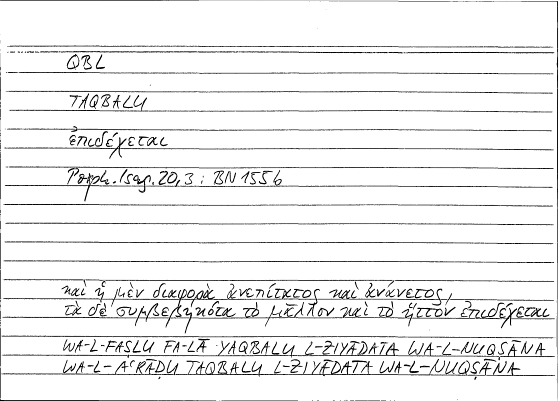 QBL
TAQBALU
ἐπιδέχεται
Porph. Isag. 20,3 : BN 155b
καὶ ἡ μὲν διαφορὰ ἀνεπίτατος καὶ ἀνάνετος,
τὰ δὲ συμβεβηκότα τὸ μᾶλλον καὶ τὸ ἧττον ἐπιδέχεται
WA-L-FAṢLU FA-LĀ YAQBALU L-ZIYĀDATA WA-L-NUQṢĀNA
WA-L-AʿRĀḌU TAQBALU L-ZIYĀDATA WA-L-NUQṢĀNA